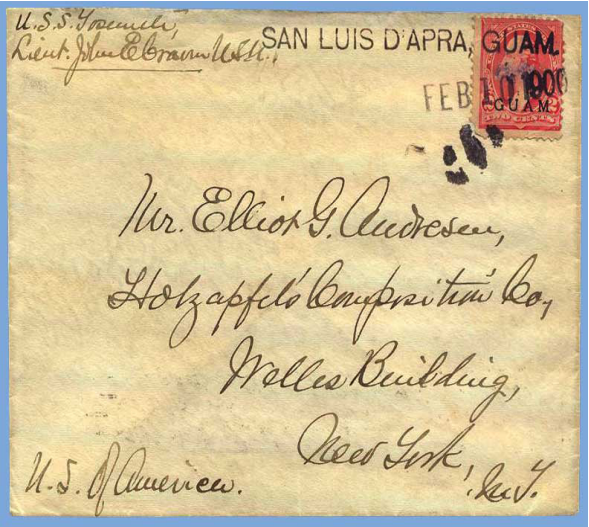 U.S.S. Yosemite,
Lieut. John E. Craven U.S.N.,
SAN LUIS D'APRA, GUAM.
FEB 10 1900
GUAM
TWO CENTS
Mr. Elliot G. Andresen,
Holzapfel's Composition Co,
Welles Building,
New York,
N.Y.
U.S. Of America.